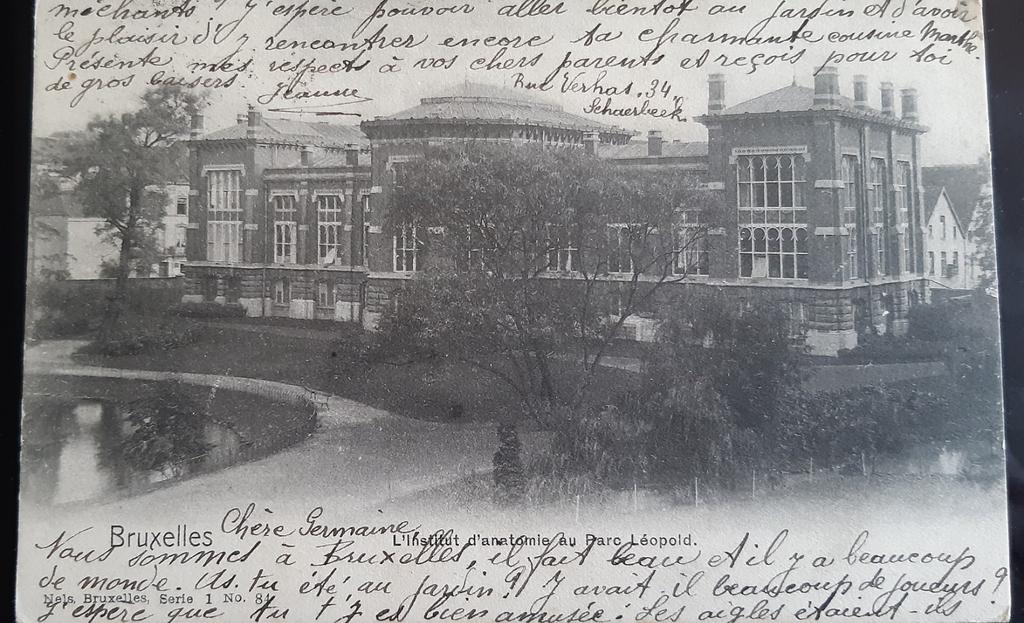 méchants? J'espère pouvoir aller bientôt au jardin et d'avoir
le plaisir d'y rencontrer encore ta charmante cousine Marthe.
Présente mes respects à vos chers parents et reçois pour toi
de gros baisers. Jeanne
Rue Verhas. 34,
Schaerbeek
Bruxelles
Chère Germaine
L'Institut d'anatomie au Parc Léopold.
Nous sommes à Bruxelles, il fait beau et il y a beaucoup
de monde. As. tu été, au jardin? Y avait il beaucoup de joueurs?
Nels, Bruxelles, Serie 1 No. 84
J'espère que tu t'y es bien amusée: Les aigles étaient-ils